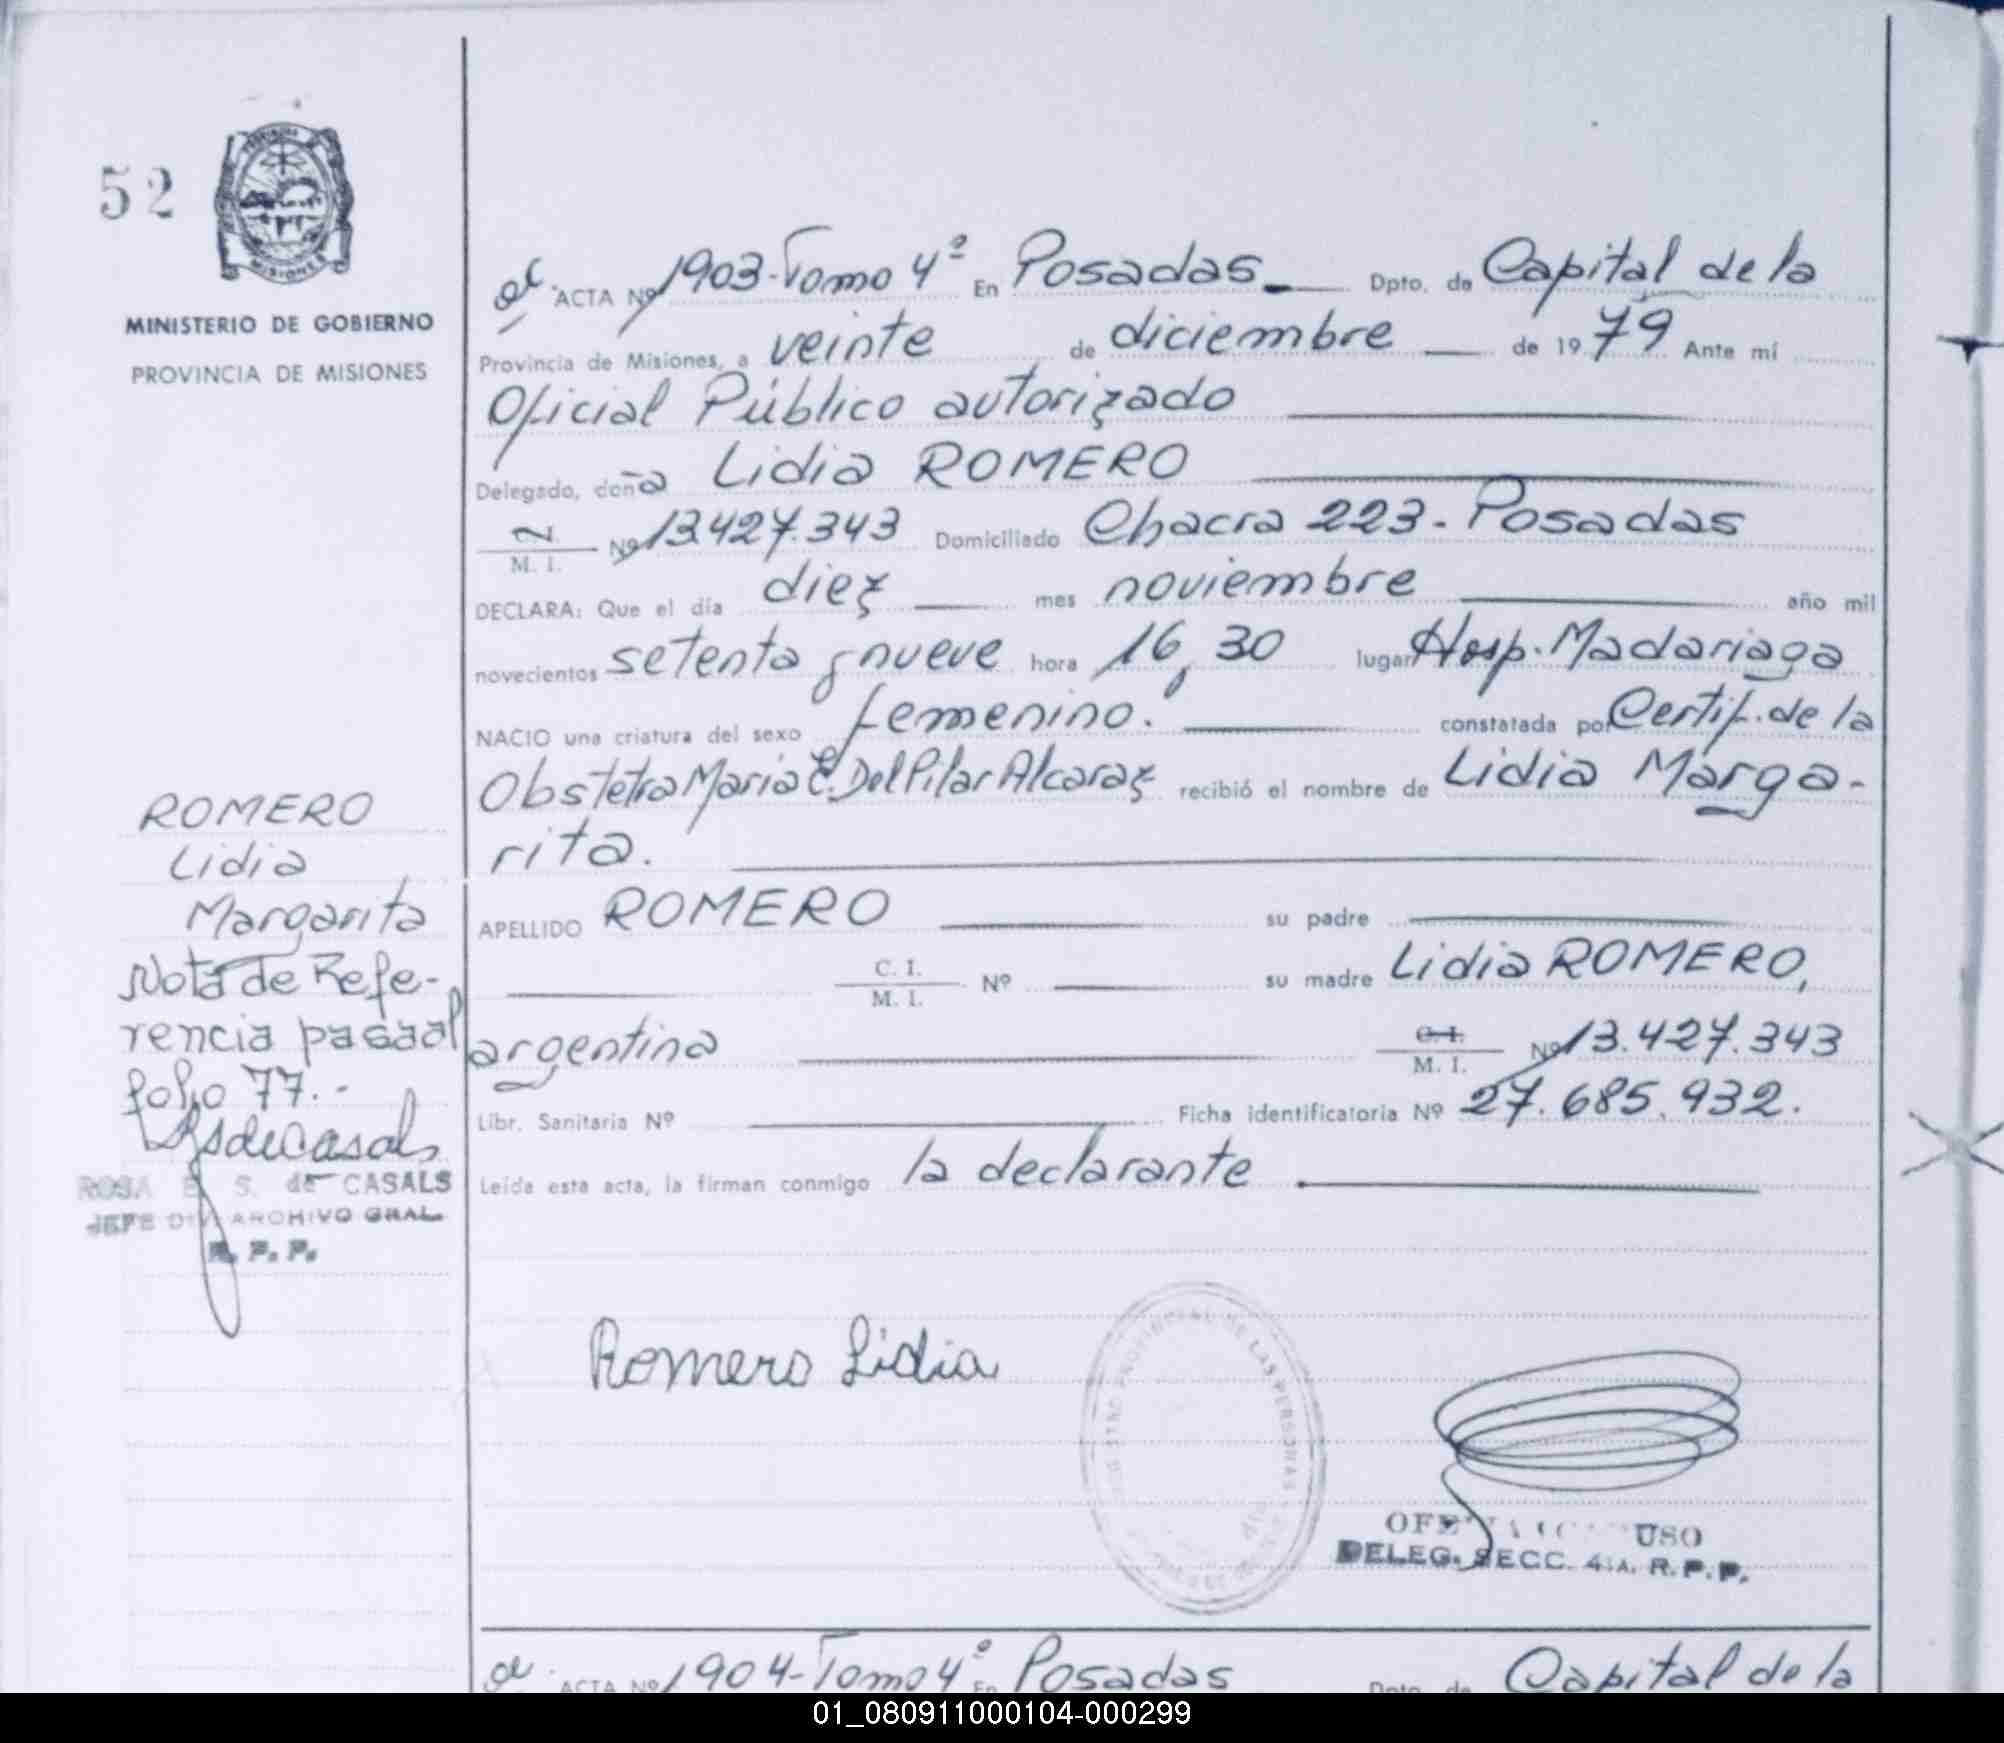 52
MISIONES
MINISTERIO DE GOBIERNO
PROVINCIA DE MISIONES
ACTA Nº 1903-Tomo 4º En Posadas Dpto. de Capital de la
Provincia de Misiones, a veinte de diciembre de 1979 Ante mí
Oficial Público autorizado
Delegado, doña Lidia ROMERO
M. I. Nº 13.427.343 Domiciliado Chacra 223-Posadas
DECLARA: Que el día diez mes noviembre año mil
novecientos setenta y nueve hora 16,30 lugar Hosp. Madariaga
NACIO una criatura del sexo femenino. constatada por Certif. de la
Obstetra Maria E. Del Pilar Alcaraz recibió el nombre de Lidia Marga-
rita.
APELLIDO ROMERO su padre
C. I.
M. I. Nº su madre Lidia ROMERO,
argentina C. I.
M. I. Nº 13.427.343
Libr. Sanitaria Nº Ficha identificatoria Nº 27.685.932.
Leída esta acta, la firman conmigo la declarante
ROMERO
Lidia
Margarita
Nota de Refe-
rencia pasa al
folio 77.-
RSdeCasals
ROSA E. S. de CASALS
JEFE DIV. ARCHIVO GRAL.
R. P. P.
Romero Lidia
PROVINCIAL DE LAS PERSONAS
USO
DELEG. SECC. 4ta. R. P. P.
ACTA Nº 1904-Tomo 4º En Posadas Dpto. de Capital de la
01_080911000104-000299